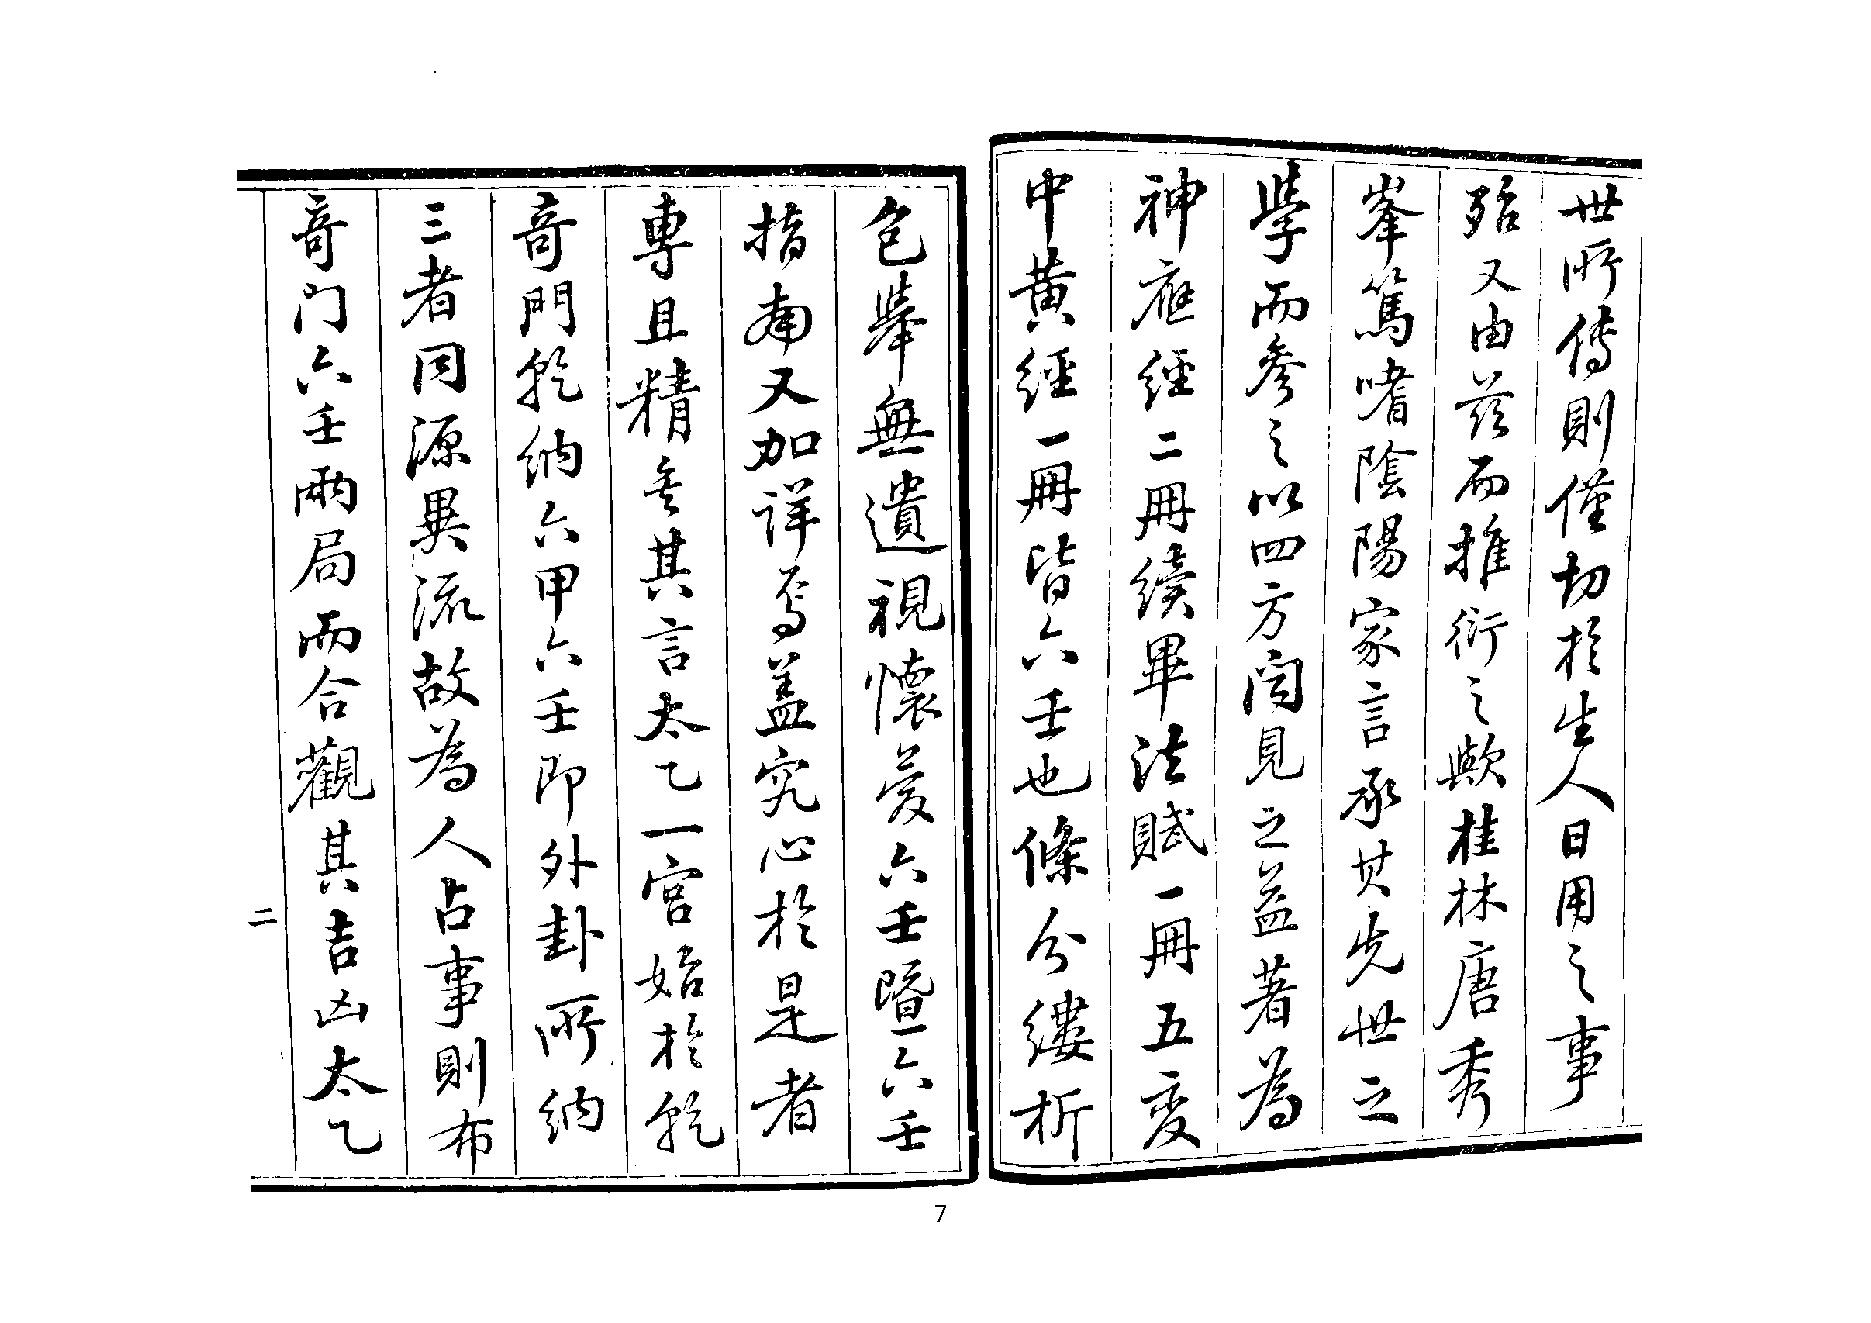 世所傳則僅切於生人日用之事
殆又由茲而推衍之歟桂林唐秀
峯篤嗜陰陽家言承其先世之
學而參之以四方聞見之益著為
神應經二冊續畢法賦一冊五变
中黃經一冊皆六壬也條分縷析
包舉無遺視懷荽六壬暨六壬
指南又加詳焉蓋究心於是者
專且精矣其言太乙一宮始於乾
奇門乾納六甲六壬即外卦所納
三者同源異流故為人占事則布
奇门六壬兩局而合觀其吉凶太乙
二
7